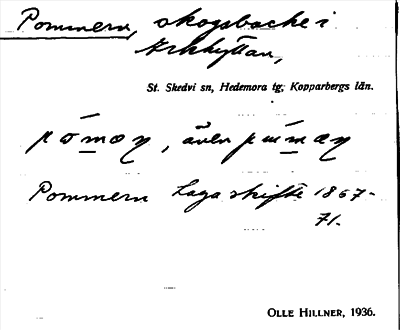 Pommern, skogsbacke i
Arkhyttan,
St. Skedvi sn, Hedemora tg, Kopparbergs län.
även
Pommern Laga skifte 1867-
71.
OLLE HILLNER, 1936.